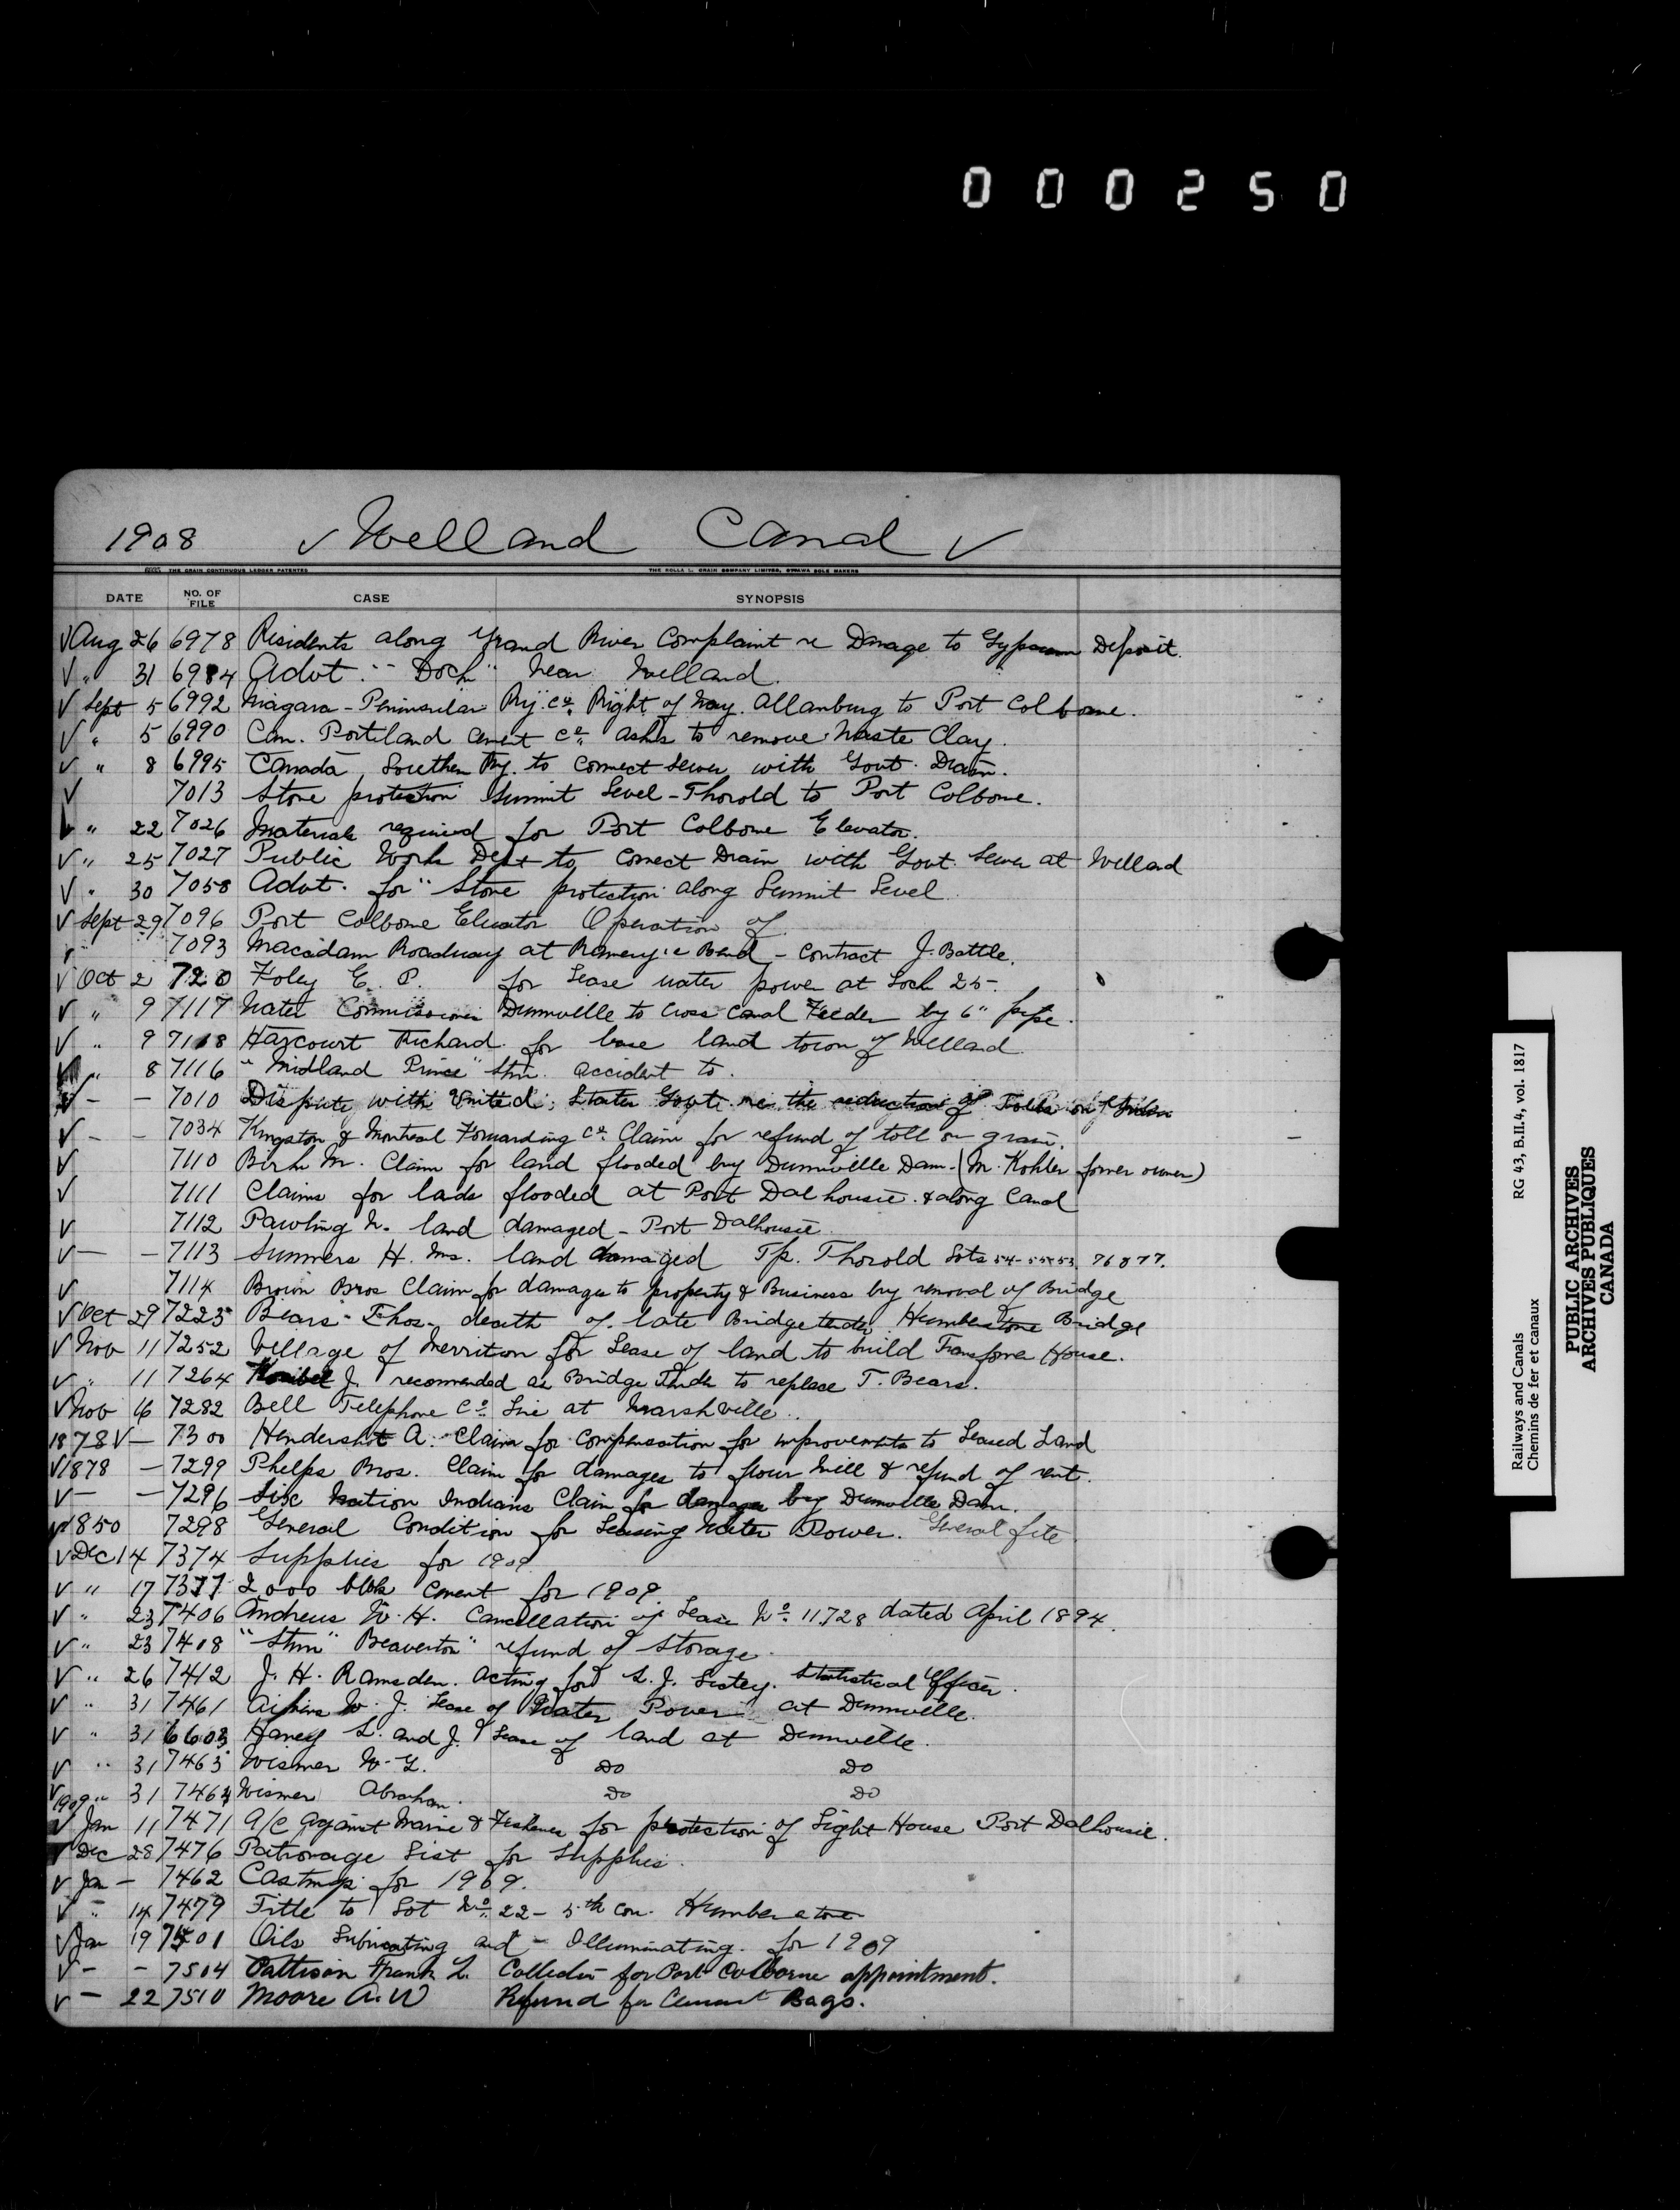 000250
1908 ✓ Welland Canal ✓
6035 THE CRAIN CONTINUOUS LEDGER PATENTED THE ROLLA L. CRAIN COMPANY LIMITED, OTTAWA SOLE MAKERS
DATE NO. OF FILE CASE SYNOPSIS
✓ Aug 26 6978 Residents along Grand River Complaint re Damage to Gypsum Deposit.
✓ " 31 6984 Advt. "Dock" Near Welland.
✓ Sept 5 6992 Niagara-Peninsular Ry. Co. Right of Way. Allanburg to Port Colborne.
✓ " 5 6990 Can. Portland Cement Co. asks to remove Waste Clay.
✓ " 8 6995 Canada Southern Ry. to connect sewer with Govt. Drain.
✓ 7013 Stone protection Summit Level - Thorold to Port Colborne.
✓ " 22 7026 Materials required for Port Colborne Elevator.
✓ " 25 7027 Public Work Dept to connect Drain with Govt. Sewer at Welland
✓ " 30 7058 Advt. for "Stone protection along Summit Level
✓ Sept 29 7096 Port Colborne Elevator Operation of.
✓ 7093 Macadam Roadway at Ramey's Bend - Contract J. Battle.
✓ Oct 2 720 Foley E. P. for Lease water power at Lock 25-.
✓ " 9 7117 Water Commissioners Dunnville to cross Canal Feeder by 6" pipe.
✓ " 9 7118 Harcourt Richard for lease land town of Welland
✓ " 8 7116 "Midland Prince" Stm. accident to.
✓ - - 7010 Dispute with United States Govt. re the reduction of Tolls on
✓ - - 7034 Kingston & Montreal Forwarding Co. Claim for refund of toll on grain.
✓ 7110 Birk M. Claim for land flooded by Dunnville Dam - (M. Kohler former owner)
✓ 7111 Claims for lads flooded at Port Dalhousie & along Canal
✓ 7112 Pawling N. land damaged - Port Dalhousie
✓ - - 7113 Summers H. Mrs. land damaged Tp. Thorold Lots 54-55 53, 76 & 77.
✓ 7114 Brown Bros Claim for damages to property & Business by removal of Bridge
✓ Oct 29 7223 Bears - Thos. death of late Bridgetender Humberstone Bridge
✓ Nov 11 7252 Village of Merritton for Lease of land to build Transformer House.
✓ " 11 7264 J. recommended as Bridge Tender to replace T. Bears.
✓ Nov 16 7282 Bell Telephone Co. Line at Marshville..
1878 ✓ - 7300 Hendershot A. Claim for compensation for improvements to Leased Land
✓ 1878 - 7299 Phelps Bros. Claim for damages to flour Mill & refund of rent.
✓ - - 7296 Six Nation Indians Claim for damages by Dunnville Dam.
✓ 1850 7298 General Condition for Leasing Water Power. General file
✓ Dec 14 7374 Supplies for 1909
✓ " 17 7377 2000 bbls cement for 1909
✓ " 23 7406 Andrews W. H. Cancellation of Lease No. 11728 dated April 1894.
✓ " 23 7408 "Stm" Beaverton" refund of storage.
✓ " 26 7412 J. H. Ramsden. acting for S. J. Statistical Officer.
✓ " 31 7461 Aikins W. J. Lease of Water Power at Dunnville.
✓ " 31 6603 Haney L. and J. Lease of land at Dunnville.
✓ " 31 7463 Wismer W. Do Do
✓ 1909 " 31 7464 Wismer Abraham. Do Do
✓ Jan 11 7471 A/C against Marine & Fisheries for protection of Light House Port Dalhousie.
✓ Dec 28 7476 Patronage List for Supplies.
✓ Jan - 7462 Castings for 1909.
✓ " 14 7479 Title to Lot No. 22 - 5th Con. Humberstone
✓ Jan 19 7501 Oils Lubricating and - Illuminating. for 1909
✓ - - 7504 Pattison Frank L. Collector for Port Colborne appointment.
✓ - 22 7510 Moore A. W Refund for Cement Bags.
Railways and Canals RG 43, B.II.4, vol. 1817
Chemins de fer et canaux
PUBLIC ARCHIVES
ARCHIVES PUBLIQUES
CANADA